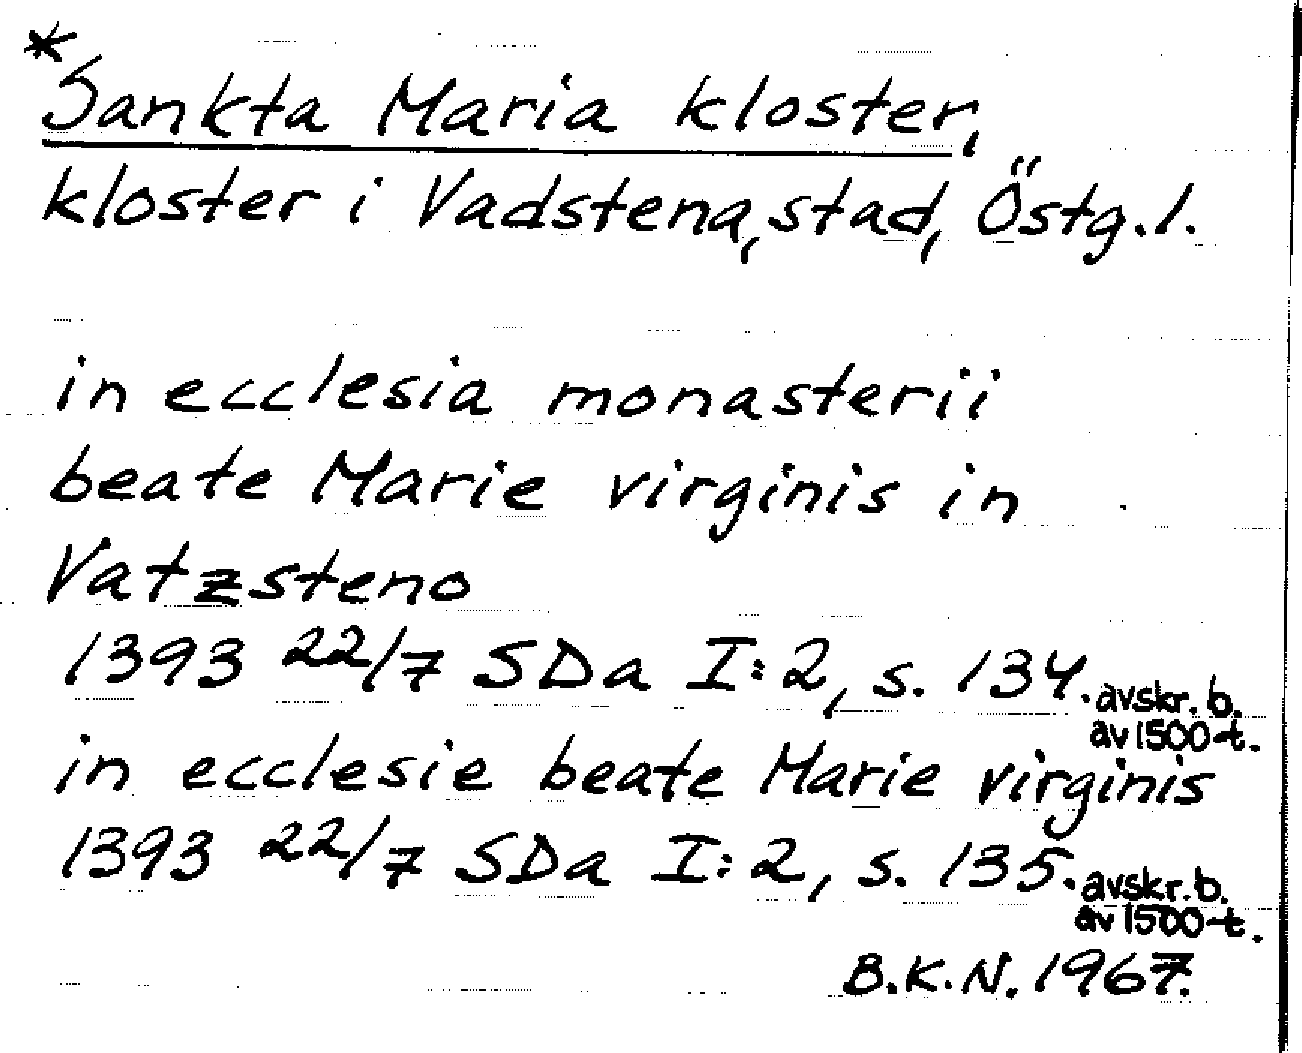 *
Sankta Maria kloster,
kloster i Vadstena, stad, Östg.l.
in ecclesia monasterii
beate Marie virginis in
Vatzsteno
1393 22/7 SDa I:2, s. 134. avskr. b.
av 1500-t.
in ecclesie beate Marie virginis
1393 22/7 SDa I:2, s. 135. avskr. b.
av 1500-t.
B.K.N. 1967.